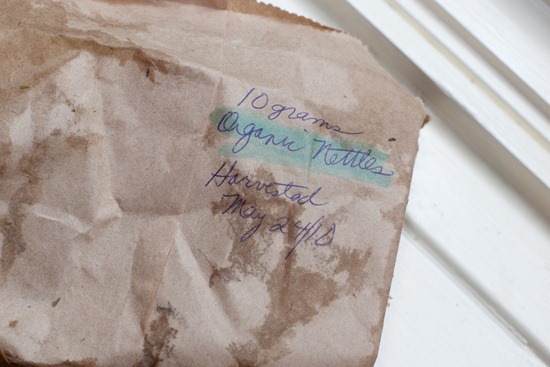 10 grams
Organic Nettles
Harvested
May 24/10